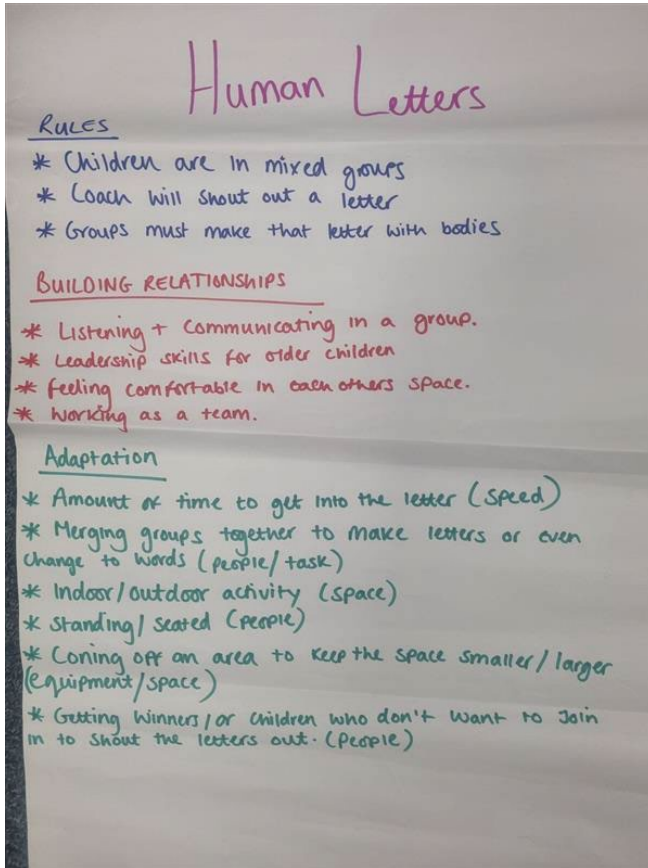 Human Letters
RULES
* Children are in mixed groups
* Coach will shout out a letter
* Groups must make that letter with bodies
BUILDING RELATIONSHIPS
* Listening + Communicating in a group.
* Leadership skills for older children
* feeling comfortable in each others space.
* working as a team.
Adaptation
* Amount of time to get into the letter (speed)
* Merging groups together to make letters or even
change to words (people/task)
* Indoor/outdoor activity (space)
* Standing/seated (people)
* Coning off an area to keep the space smaller/larger
(equipment/space)
* Getting winners/or children who don't want to Join
in to shout the letters out. (people)